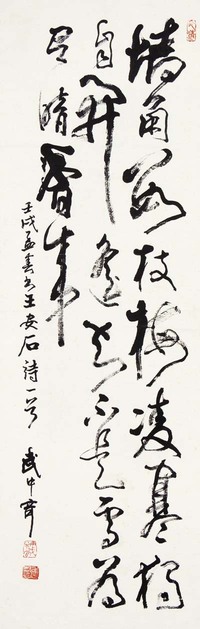 墙角数枝梅凌寒独
自开遥知不是雪为
有暗香来
壬戌孟春书王安石诗一首 武中奇